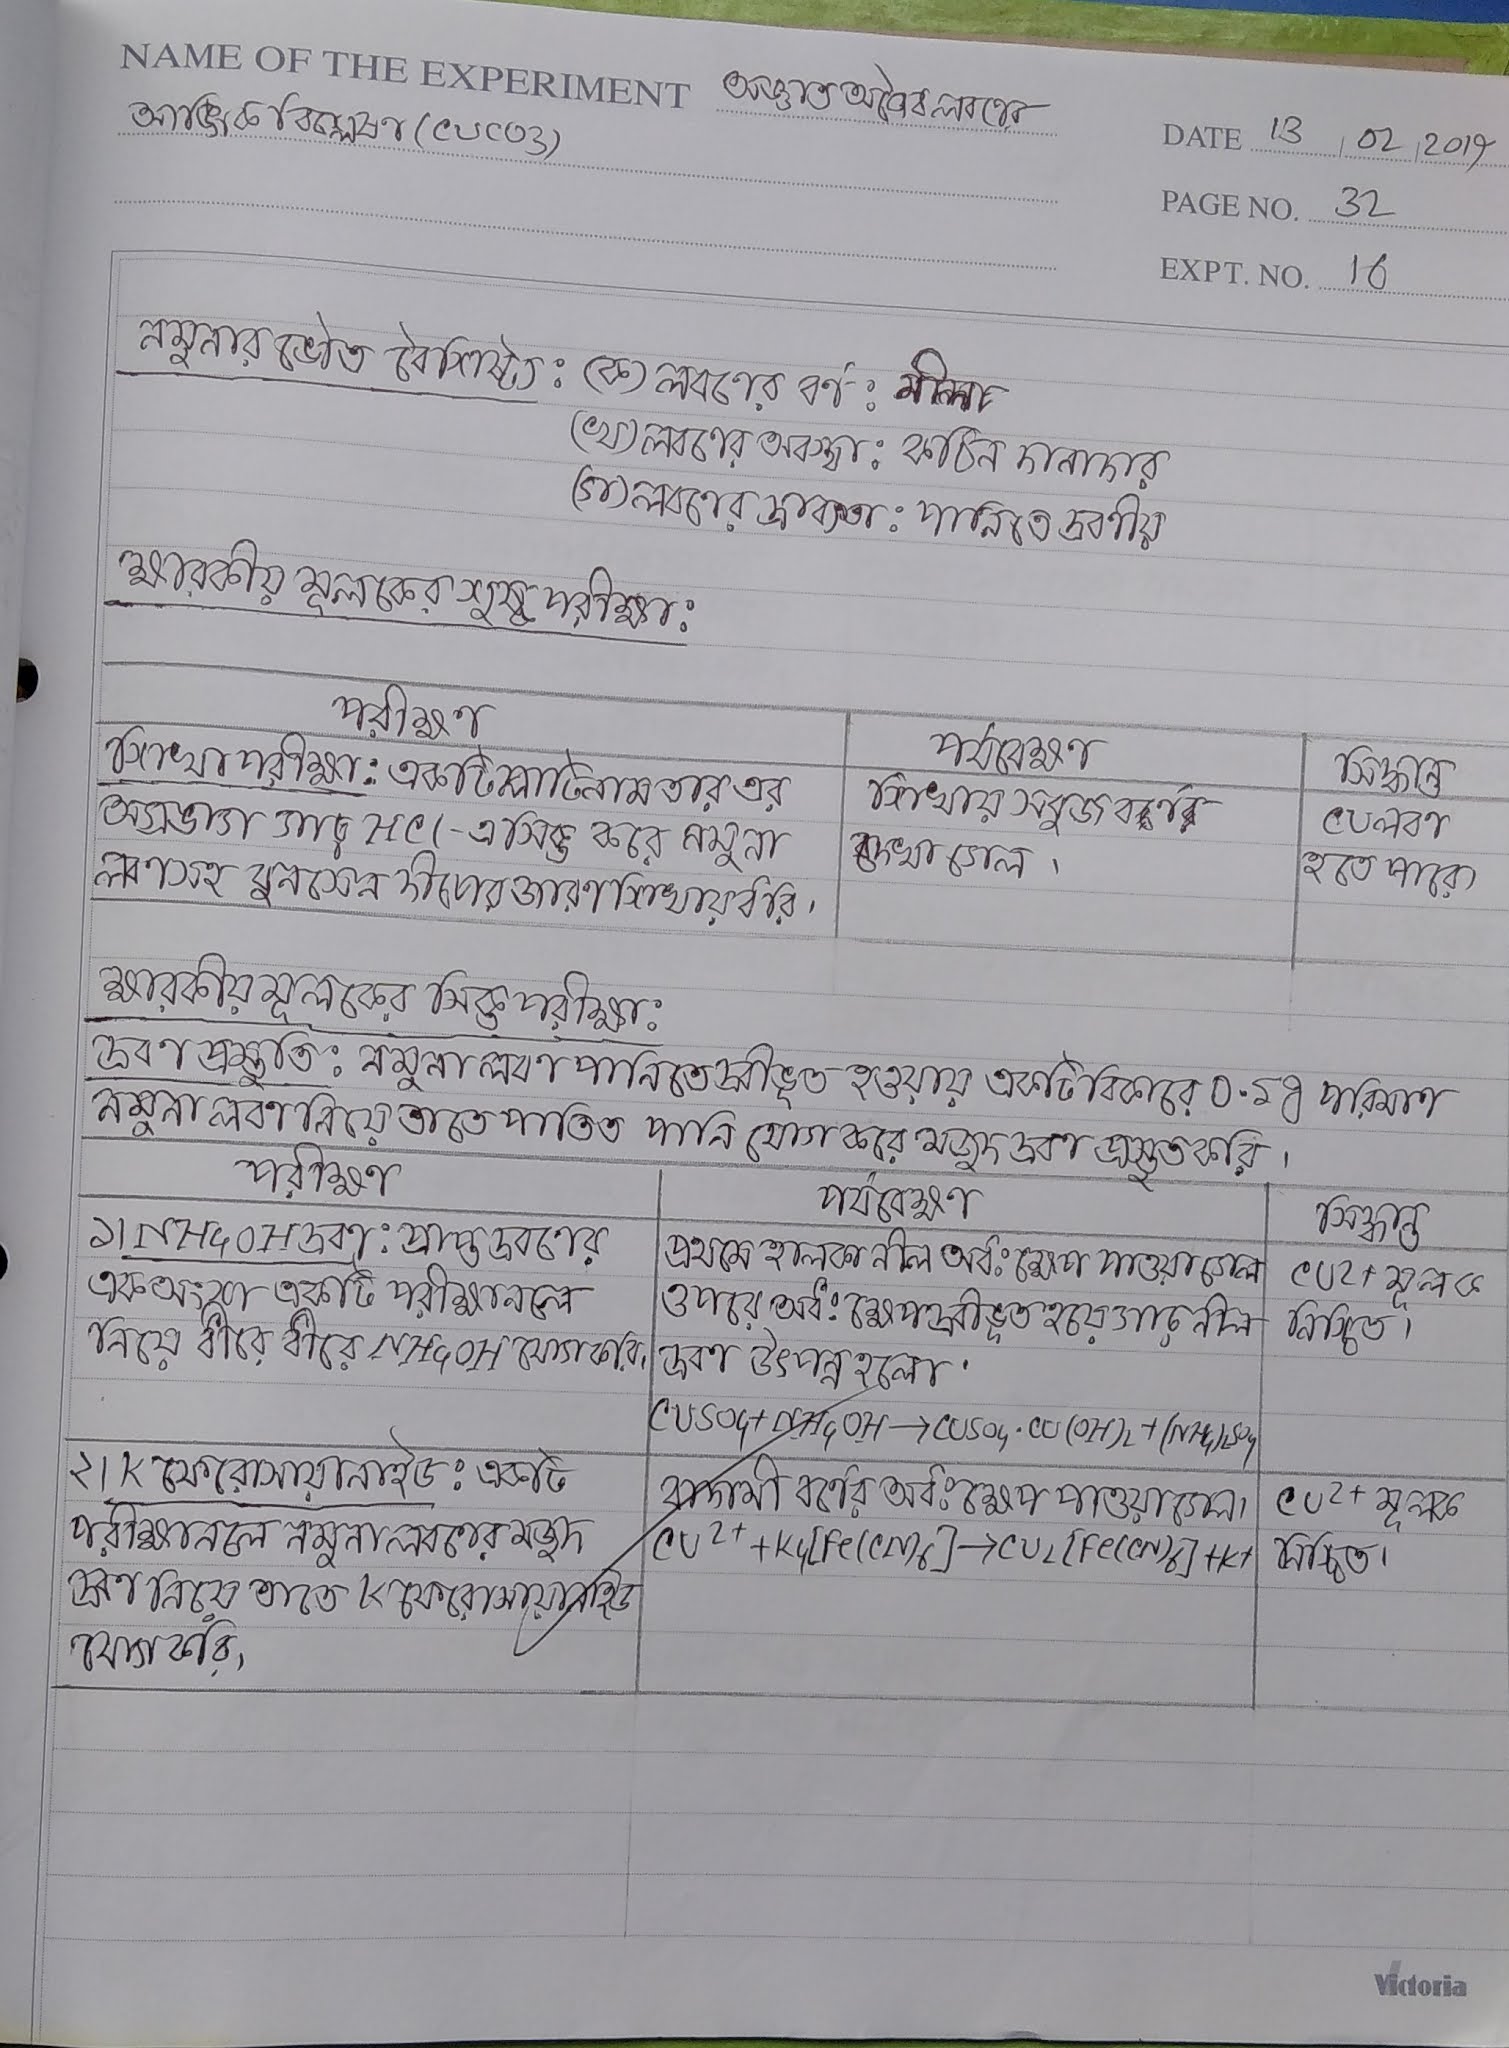 NAME OF THE EXPERIMENT অজ্ঞাত অজৈব লবণের
আঙ্গিক বিশ্লেষণ (CUCO3)
DATE 13 02 2019
PAGE NO. 32
EXPT. NO. 16
নমুনার ভৌত বৈশিষ্ট্য: (ক) লবণের বর্ণ: নীলা
(খ) লবণের অবস্থা: কঠিন দানাদার
(গ) লবণের দ্রাব্যতা: পানিতে দ্রবণীয়
ক্ষারকীয় মূলকের শুষ্ক পরীক্ষা:
পরীক্ষণ
পর্যবেক্ষণ
সিদ্ধান্ত
শিখা পরীক্ষা: একটি প্লাটিনাম তার এর
অগ্রভাগ গাঢ় HCl-এ সিক্ত করে নমুনা
লবণসহ বুনসেন দীপের জারণ শিখায় ধরি।
শিখায় সবুজ বর্ণ
দেখা গেল।
CU লবণ
হতে পারে।
ক্ষারকীয় মূলকের সিক্ত পরীক্ষা:
দ্রবণ প্রস্তুতি: নমুনা লবণ পানিতে দ্রবীভূত হওয়ায় একটি বিকারে 0.5g পরিমাণ
নমুনা লবণ নিয়ে তাতে পাতিত পানি যোগ করে মজুদ দ্রবণ প্রস্তুত করি।
পরীক্ষণ
পর্যবেক্ষণ
সিদ্ধান্ত
১। NH4OH দ্রবণ: প্রাপ্ত দ্রবণের
এক অংশ একটি পরীক্ষানলে
নিয়ে ধীরে ধীরে NH4OH যোগ করি।
প্রথমে হালকা নীল অধঃক্ষেপ পাওয়া গেল
ও পরে অধঃক্ষেপ দ্রবীভূত হয়ে গাঢ় নীল
দ্রবণ উৎপন্ন হলো।
CUSO4 + NH4OH → CUSO4.CU(OH)2 + (NH4)2SO4
CU2+ মূলক
নিশ্চিত।
২। K ফেরোসায়ানাইড: একটি
পরীক্ষানলে নমুনা লবণের মজুদ
দ্রবণ নিয়ে তাতে K ফেরোসায়ানাইড
যোগ করি।
বাদামী বর্ণের অধঃক্ষেপ পাওয়া গেল।
CU2+ + K4[Fe(CN)6] → CU2[Fe(CN)6] + K+
CU2+ মূলক
নিশ্চিত।
Victoria